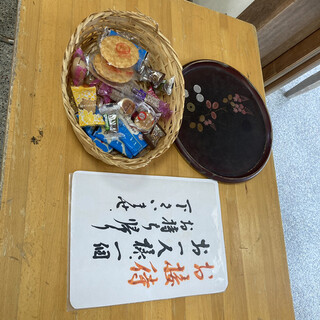 お接待
お一人様、一個
お持ち帰り
下さいませ。